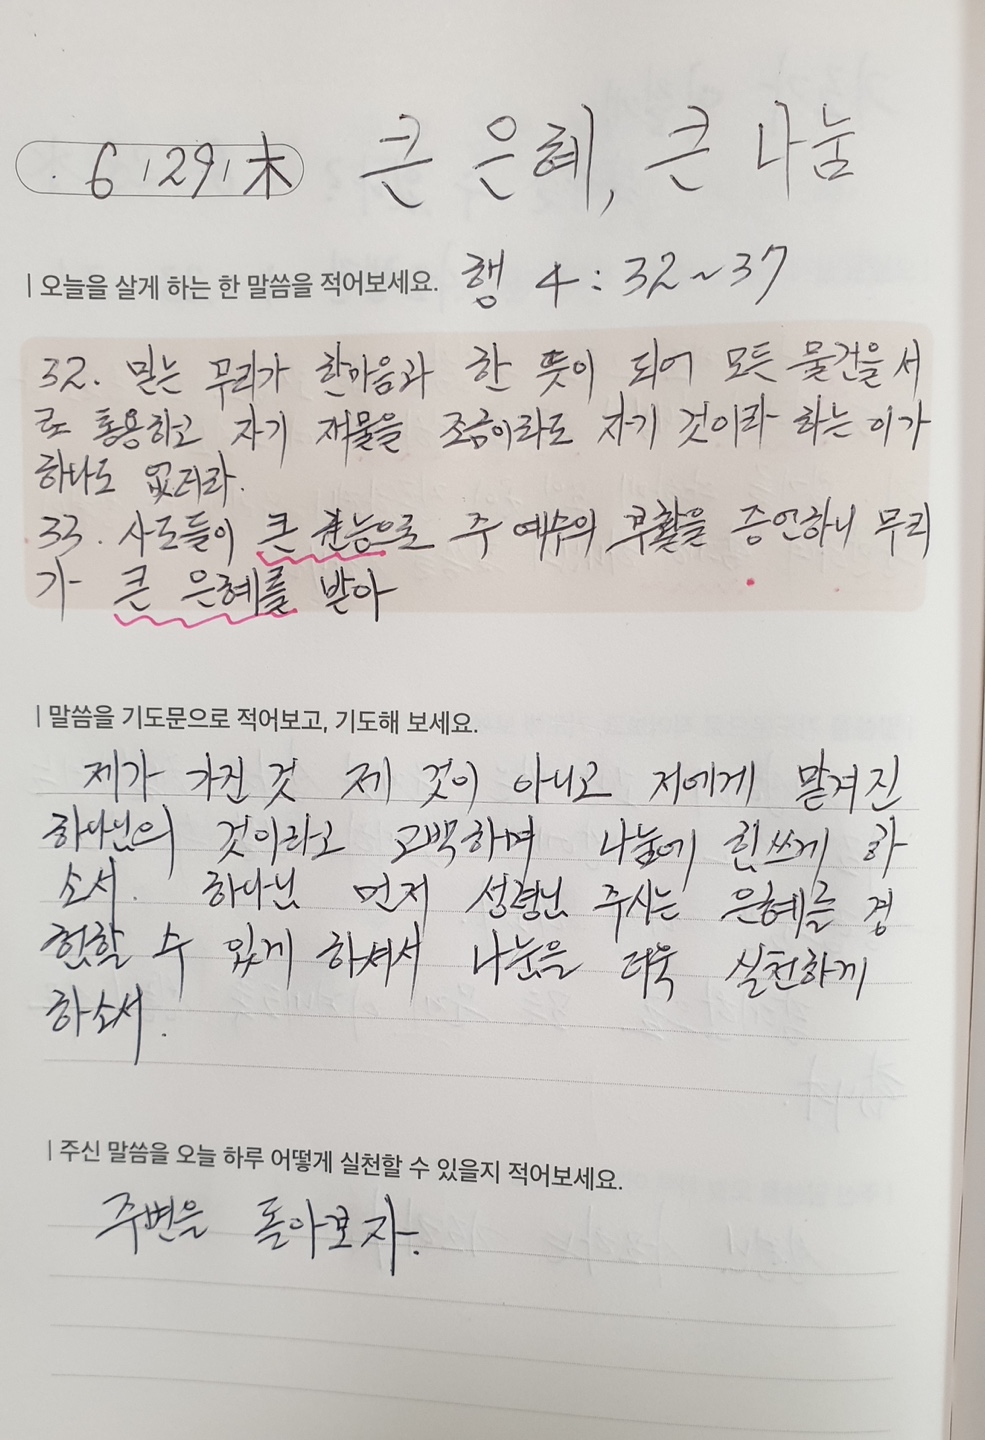 6 / 29 / 木 큰 은혜, 큰 나눔
| 오늘을 살게 하는 한 말씀을 적어보세요. 행 4 : 32 ~ 37
32. 믿는 무리가 한마음과 한 뜻이 되어 모든 물건을 서
로 통용하고 자기 재물을 조금이라도 자기 것이라 하는 이가
하나도 없더라.
33. 사도들이 큰 권능으로 주 예수의 부활을 증언하니 무리
가 큰 은혜를 받아
| 말씀을 기도문으로 적어보고, 기도해 보세요.
제가 가진 것 제 것이 아니고 저에게 맡겨진
하나님의 것이라고 고백하며 나눔에 힘쓰게 하
소서. 하나님 먼저 성령님 주시는 은혜를 경
험할 수 있게 하셔서 나눔을 더욱 실천하게
하소서.
| 주신 말씀을 오늘 하루 어떻게 실천할 수 있을지 적어보세요.
주변을 돌아보자.